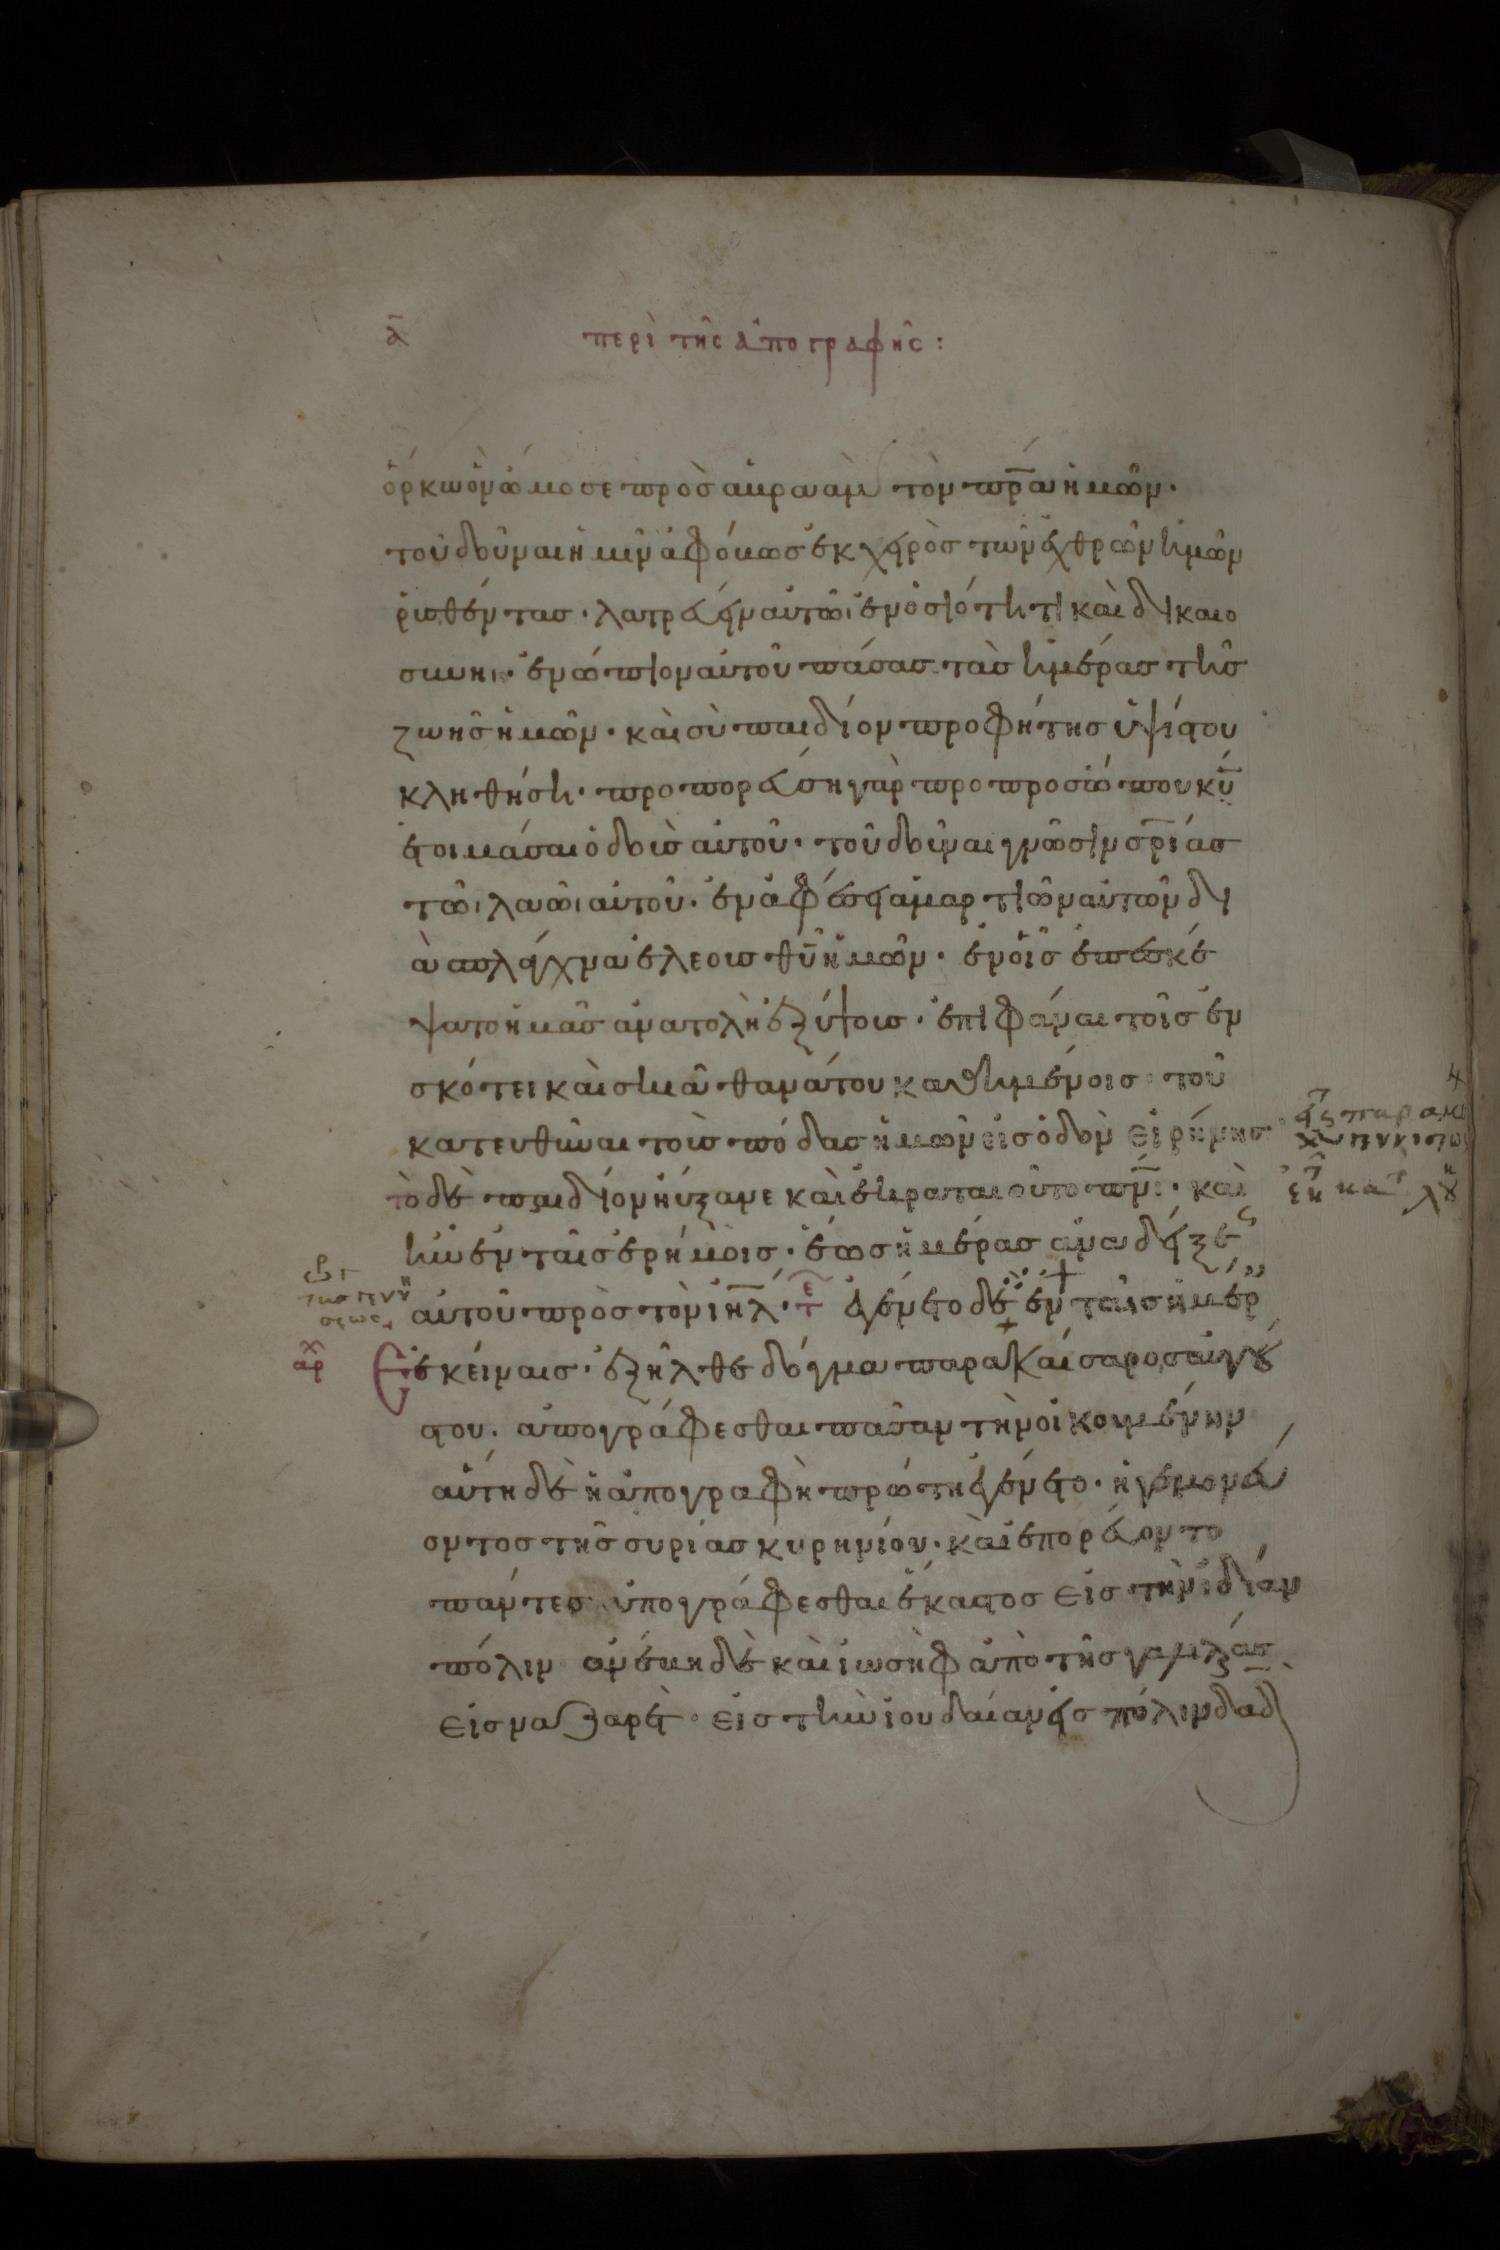 α̅ περὶ τῆς ἀπογραφῆς:
ὅρκων ὃν ὤμοσε πρὸς ἀβραὰμ τὸν πρ̅α ἡμῶν·
τοῦ δοῦναι ἡμῖν ἀφόβως ἐκ χειρὸς τῶν ἐχθρῶν ἡμῶν
ῥυσθέντας· λατρεύειν αὐτῶι ἐν ὁσιότητι καὶ δικαιο
σύνηι· ἐνώπιον αὐτοῦ πάσας τὰς ἡμέρας τῆς
ζωῆς ἡμῶν· καὶ σὺ παιδίον προφήτης ὑψίστου
κληθήση· προπορεύση γὰρ προ προσώπου κ̅υ
ἑτοιμάσαι ὁδοὺς αὐτοῦ· τοῦ δοῦναι γνῶσιν σ̅ρίας
τῶι λαῶι αὐτοῦ· ἐν ἀφέσει ἁμαρτιῶν αὐτῶν δι
ὰ σπλάγχνα ἐλέους θ̅υ ἡμῶν· ἐν οἷς ἐπεσκέ
ψατο ἡμᾶς ἀνατολὴ ἐξ ὕψους· ἐπιφάναι τοῖς ἐν
σκότει καὶ σκιᾶ θανάτου καθημένοις· τοῦ
κατευθῦναι τοὺς πόδας ἡμῶν εἰς ὁδὸν εἰρήνης
τὸ δὲ παιδίον ηὔξανε καὶ ἐκραταιοῦτο π̅νι· καὶ
ἦν ἐν ταῖς ἐρήμοις· ἕως ἡμέρας ἀναδείξεως
αὐτοῦ πρὸς τὸν ι̅ηλ· τε ἐγένετο δὲ ἐν ταῖς ἡμέρ
αρχ Ἐκείναις· ἐξῆλθε δόγμα παρα Καίσαρος αὐγού
στου· ἀπογράφεσθαι πᾶσαν τὴν οἰκουμένην
αὕτη δὲ ἡ ἀπογραφὴ πρώτη ἐγένετο· ἡγεμονεύ
οντος τῆς συρίας κυρηνίου· καὶ ἐπορεύοντο
πάντες ἀπογράφεσθαι ἕκαστος εἰς τὴν ἰδίαν
πόλιν ἀνέβη δὲ καὶ ἰωσὴφ ἀπὸ τῆς γαλιλαίας
εἰς ναζαρὲτ· εἰς τὴν ἰουδαίαν εἰς πόλιν δα̅δ